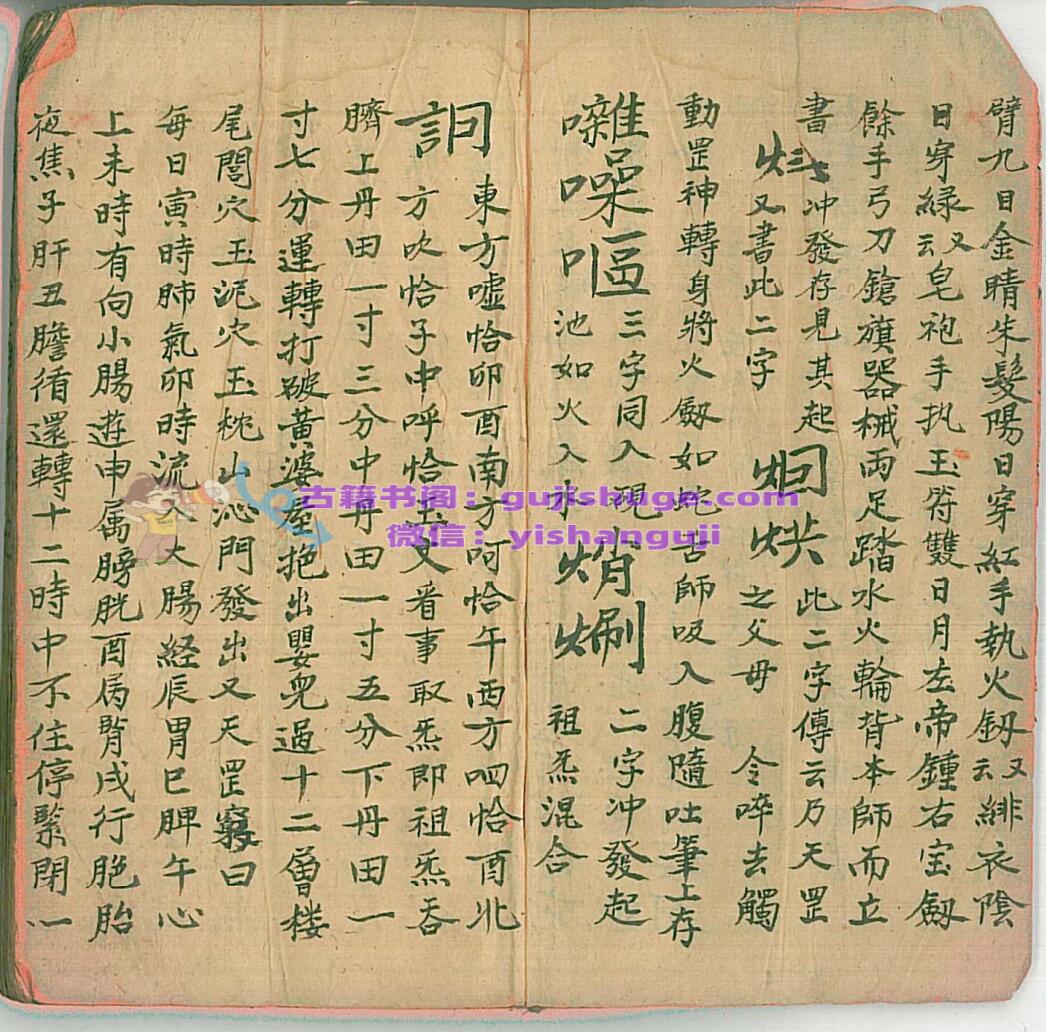 臂九目金睛朱髮陽日穿紅手執火劔又云緋衣陰
日穿緑又云皂袍手执玉符雙日月左帝鍾右宝劔
餘手弓刀鎗旗器械両足踏水火輪背本師而立
書 冲發存見其起 炯烘 此二字傳云乃天罡
又書此二字 之父母 令啐去觸
動罡神轉身將火劔如蛇舌師吸入腹隨吐筆上存
囃噪嘔 三字同入現 二字冲發起
池如火入水 祖炁混合
詗 東方嘘恰卯酉南方呵恰午西方呬恰酉北
方吹恰子中呼恰玉又看事取炁即祖炁吞
臍上丹田一寸三分中丹田一寸五分下丹田一
寸七分運轉打破黄婆屋抱出嬰児過十二曾楼
尾閭穴玉泥穴玉枕山沁門發出又天罡竅曰
每日寅時肺氣卯時流入大腸經辰胃巳脾午心
上未時有向小腸逰申属膀胱酉属腎戌行胞胎
夜焦子肝丑膽循還轉十二時中不住停緊閉一
古籍书阁：gujishuge.com
微信：yishanguji